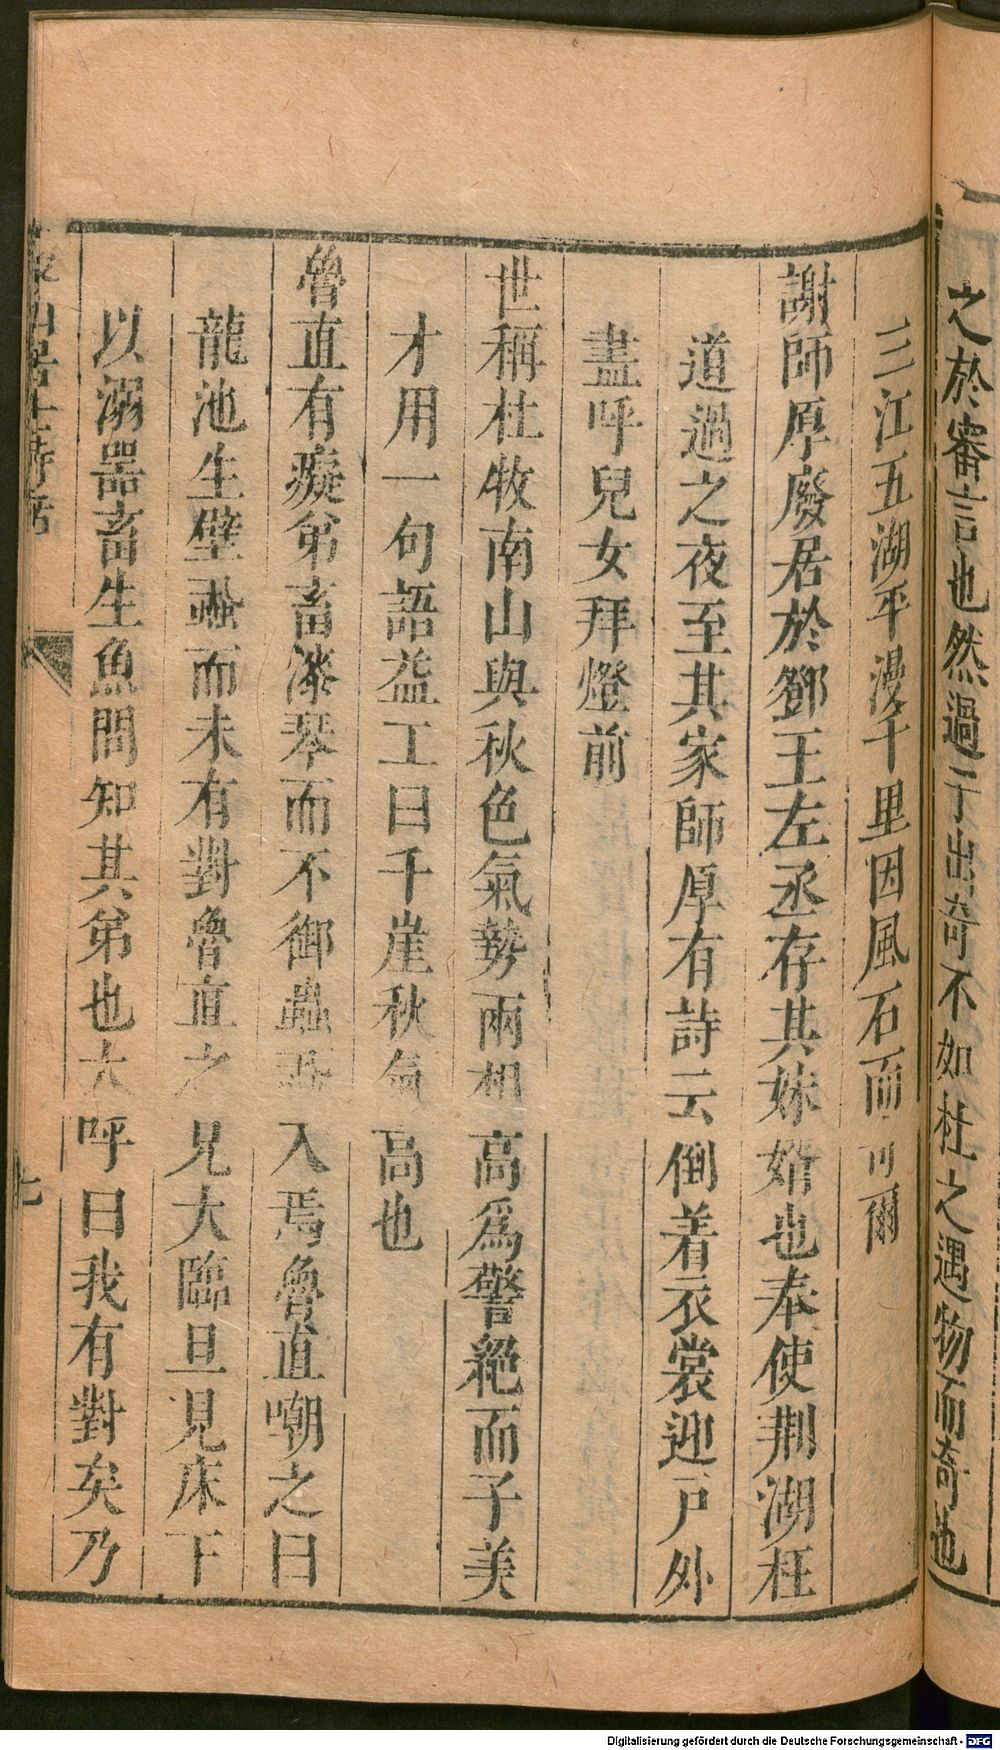 之於審言也然過于出奇不如杜之遇物而奇也
三江五湖平漫千里因風石而奇爾
謝師厚廢居於鄧王左丞存其妹婿也奉使荆湖枉
道過之夜至其家師厚有詩云倒着衣裳迎戸外
盡呼兒女拜燈前
世稱杜牧南山與秋色氣勢兩相高爲警絕而子美
才用一句語益工曰千崖秋氣高也
魯直有癡弟畜漆琴而不御蟲虱入焉魯直嘲之曰
龍池生壁蝨而未有對魯直之兄大臨旦見床下
以溺器畜生魚問知其弟也大呼曰我有對矣乃
後山居士詩話
七
Digitalisierung gefördert durch die Deutsche Forschungsgemeinschaft - DFG